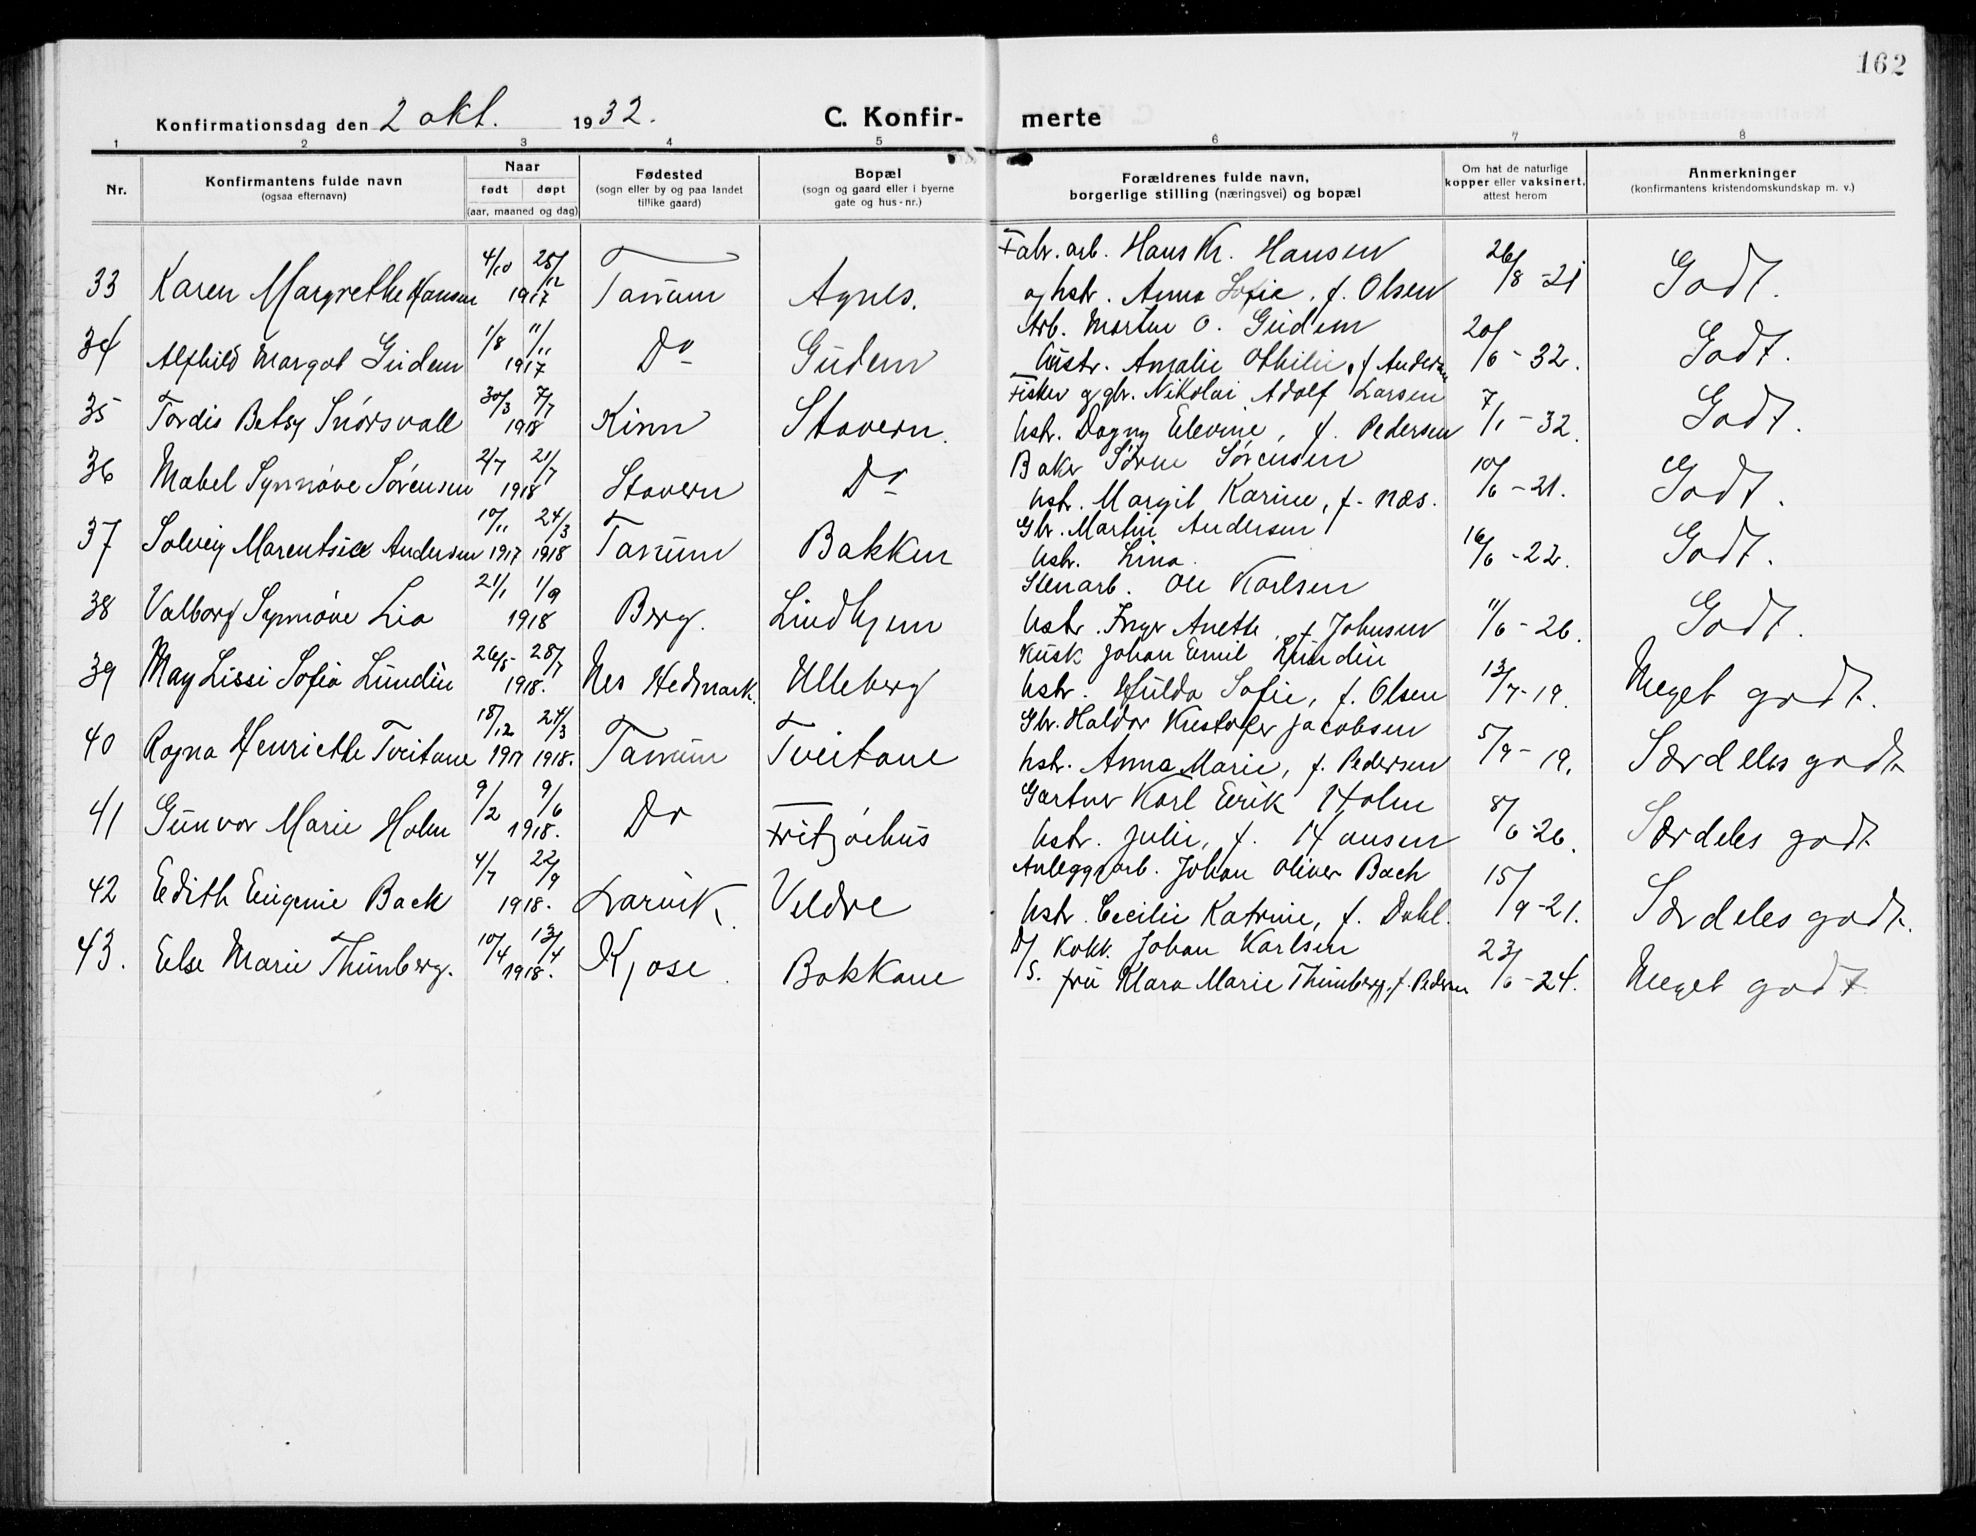 162
Konfirmationsdag den 2 okt. 1932.
C. Konfir-merte
1 2 3 4 5 6 7 8
Nr.
Konfirmantens fulde navn
(ogsaa efternavn)
Naar
født døpt
(aar, maaned og dag)
Fødested
(sogn eller by og paa landet
tillike gaard)
Bopæl
(sogn og gaard eller i byerne
gate og hus-nr.)
Forældrenes fulde navn,
borgerlige stilling (næringsvei) og bopæl
Om hat de naturlige
kopper eller vaksinert,
attest herom
Anmerkninger
(konfirmantens kristendomskundskap m. v.)
Fabr. arb. Hans Kr. Hansen
33 Karen Margrethe Hansen 4/10 25/12 1917 Tanum Agnes. og hstr. Anna Sofie, f. Olsen 26/8-21 Godt.
Arb. Morten O. Gudem
34 Alfhild Margot Gudem 1/8 11/11 1917 Do Gudem hustr. Amalie Othilie, f Andersen 20/6-32. Godt.
Fisker og gbr. Nikolai Adolf Larsen
35 Tordis Betsy Snørsvall 30/3 7/7 1918 Kinn Stavern. hstr. Dagny Elevine, f. Pedersen 7/1-32. Godt.
Baker Sørne Sørensen
36 Mabel Synnøve Sørensen 2/7 21/7 1918 Stavern Do hstr. Margit Karine, f. Næs. 10/6-21. Godt.
Gbr. Martin Andersen
37 Solveig Marentsie Andersen 10/11 1917 24/3 1918 Tanum Bakken hstr. Lina. 16/6-22. Godt.
Stenarb. Ole Karlsen
38 Valborg Synnøve Lia 21/1 1/9 1918 Berg. Lindhjem hstr. Inger Anette, f. Johnsen 11/6-26. Godt.
Kusk Johan Emil Lundin
39 May Lissi Sofia Lundin 26/5- 28/7 1918. Nes Hedmark. Ulleberg hstr. Hulda Sofie, f. Olsen 13/7-19. Meget godt.
Gbr. Haldor Kristofer Jacobsen
40 Ragna Henriette Tveitane 18/12 1917 24/3 1918. Tanum Tveitane hstr. Anna Marie, f. Pedersen 5/9-19. Særdeles godt
Gartner Karl Eerik Holm
41 Gunvor Marie Holm 9/2 9/6 1918. Do Fritzøehus hstr. Julie, f. Hansen 8/6-26. Særdeles godt
Anleggsarb. Johan Oliver Bach
42 Edith Eugenie Back 4/7 22/9 1918. Larvik. Veldre hstr. Cecilie Katrine, f. Dahl. 15/9-21. Særdeles godt.
D/S. Kokk. Johan Karlsen
43. Else Marie Thunberg. 10/4 13/4 1918. Kjose. Bakkane fru Klara Marie Thunberg, f. Pedersen 23/6-24. Meget godt